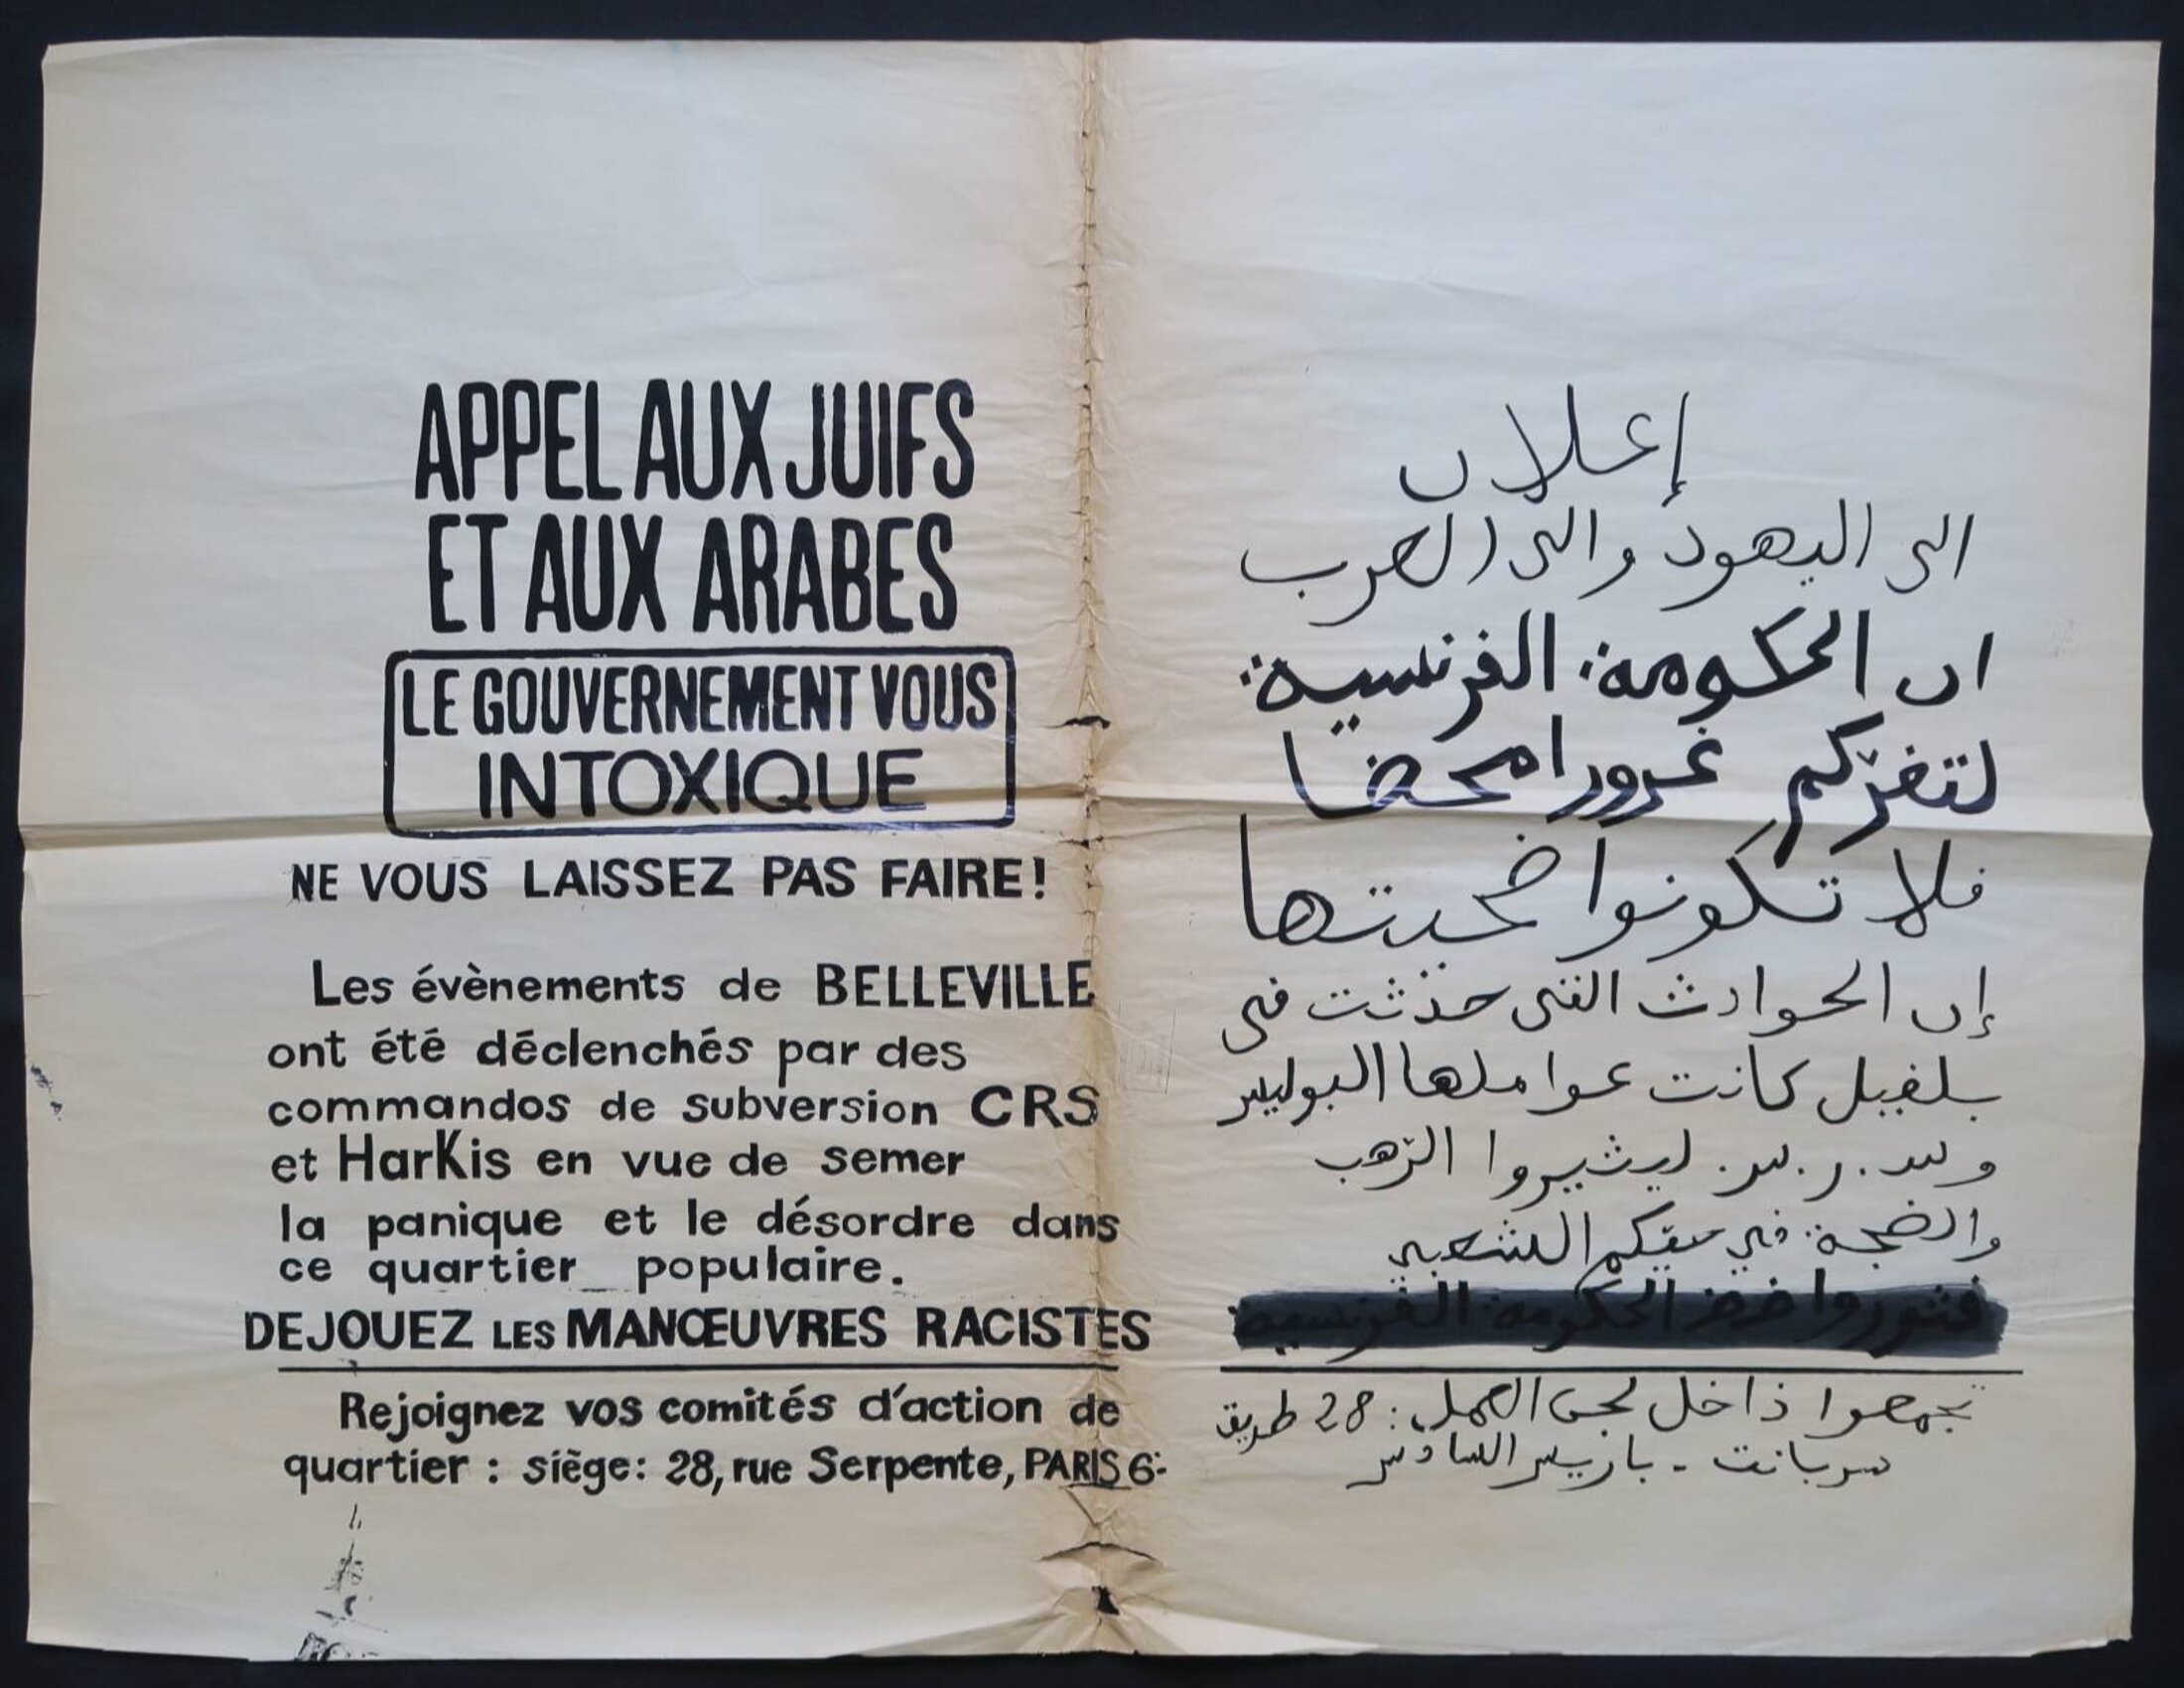 APPEL AUX JUIFS
ET AUX ARABES
LE GOUVERNEMENT VOUS
INTOXIQUE
NE VOUS LAISSEZ PAS FAIRE!
Les évènements de BELLEVILLE
ont été déclenchés par des
commandos de subversion CRS
et HarKis en vue de semer
la panique et le désordre dans
ce quartier populaire.
DEJOUEZ LES MANŒUVRES RACISTES
Rejoignez vos comités d'action de
quartier : siège: 28, rue Serpente, PARIS 6e
إعلان
الى اليهود والى العرب
ان الحكومة الفرنسية
لتغرّكم غرورا محضا
فلا تكونوا ضحيتها
إن الحوادث التى حدثت في
بلفيل كانت عواملها البوليس
وس.ر.س. ليثيروا الرّهب
والضجة في حيّكم الشعبي
فثوروا ضد الحكومة الفرنسية
تجمعوا داخل لجن العمل: 28 طريق
سربانت - باريس السادس